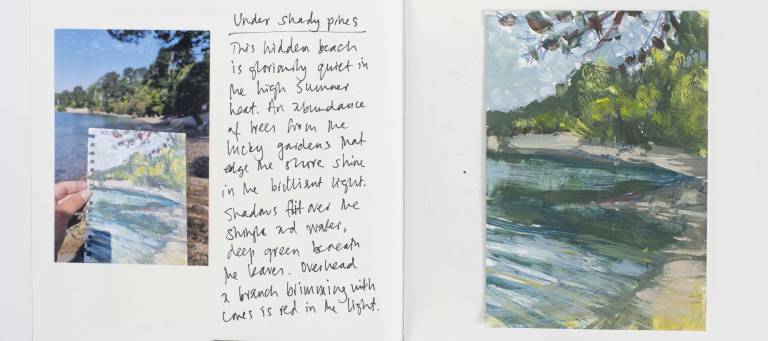 Under shady pines
This hidden beach
is gloriously quiet in
the high Summer
heat. An abundance
of trees from the
lucky gardens that
edge the shore shine
in the brilliant light.
Shadows flit over the
shingle and water,
deep green beneath
the leaves. Overhead
a branch brimming with
cones is red in the light.